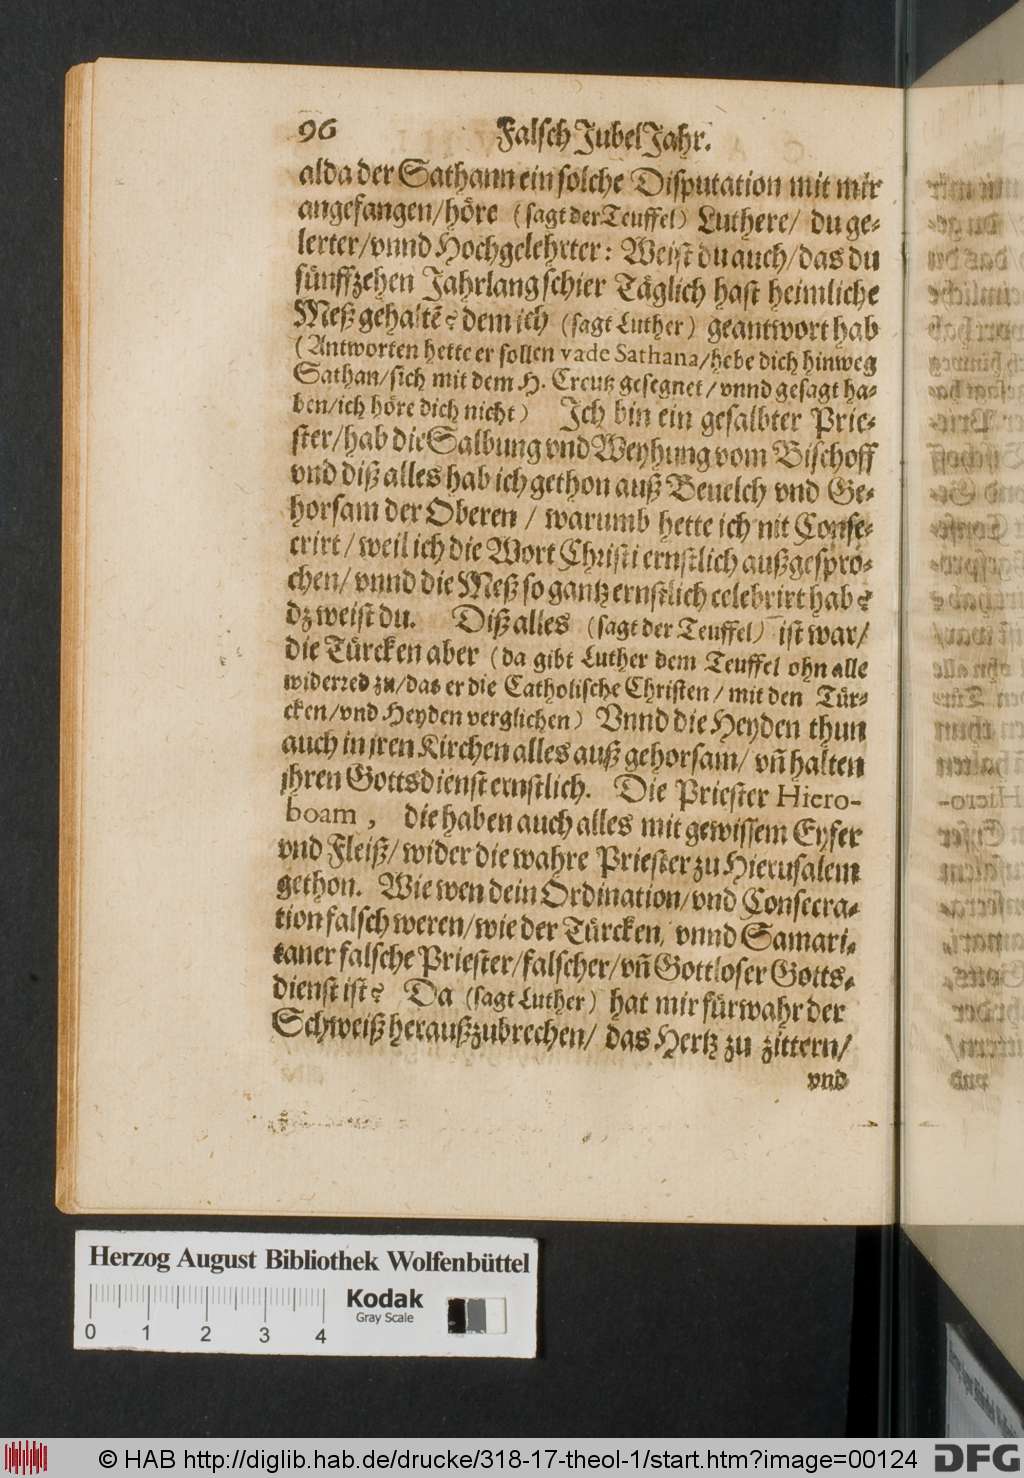 96 Falsch JubelJahr.
alda der Sathann ein solche Disputation mit mir
angefangen/höre (sagt der Teuffel) Luthere/ du ge-
lerter/vnnd Hochgelehrter: Weist du auch/das du
fünffzehen Jahrlang schier Täglich hast heimliche
Meß gehaltē? dem ich (sagt Luther) geantwort hab
(Antworten hette er sollen vade Sathana/hebe dich hinweg
Sathan/sich mit dem H. Creutz gesegnet/vnnd gesagt ha-
ben/ich höre dich nicht) Ich bin ein gesalbter Prie-
ster/hab die Salbung vnd Weyhung vom Bischoff
vnd diß alles hab ich gethon auß Beuelch vnd Ge-
horsam der Oberen / warumb hette ich nit Conse-
crirt/ weil ich die Wort Christi ernstlich außgespro-
chen/ vnnd die Meß so gantz ernstlich celebrirt hab?
dz weist du. Diß alles (sagt der Teuffel) ist war/
die Türcken aber (da gibt Luther dem Teuffel ohn alle
widerred zu/das er die Catholische Christen/ mit den Tür-
cken/vnd Heyden verglichen) Vnnd die Heyden thun
auch in jren Kirchen alles auß gehorsam/ vñ halten
jhren Gottsdienst ernstlich. Die Priester Hiero-
boam , die haben auch alles mit gewissem Eyfer
vnd Fleiß/ wider die wahre Priester zu Hierusalem
gethon. Wie wen dein Ordination/vnd Consecra-
tion falsch weren/wie der Türcken, vnnd Samari-
taner falsche Priester/falscher/vñ Gottloser Gotts-
dienst ist? Da (sagt Luther) hat mir fürwahr der
Schweiß heraußzubrechen/ das Hertz zu zittern/
vnd
Herzog August Bibliothek Wolfenbüttel
0 1 2 3 4
Kodak
Gray Scale
© HAB http://diglib.hab.de/drucke/318-17-theol-1/start.htm?image=00124
DFG